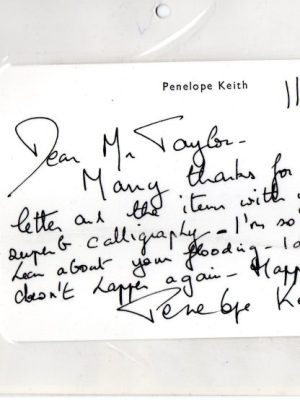 Penelope Keith
11
Dear Mr Taylor-
Many thanks for
letter and the items with
superb calligraphy - I'm so
hear about your flooding -
doesn't happen again - Happ
Penelope K